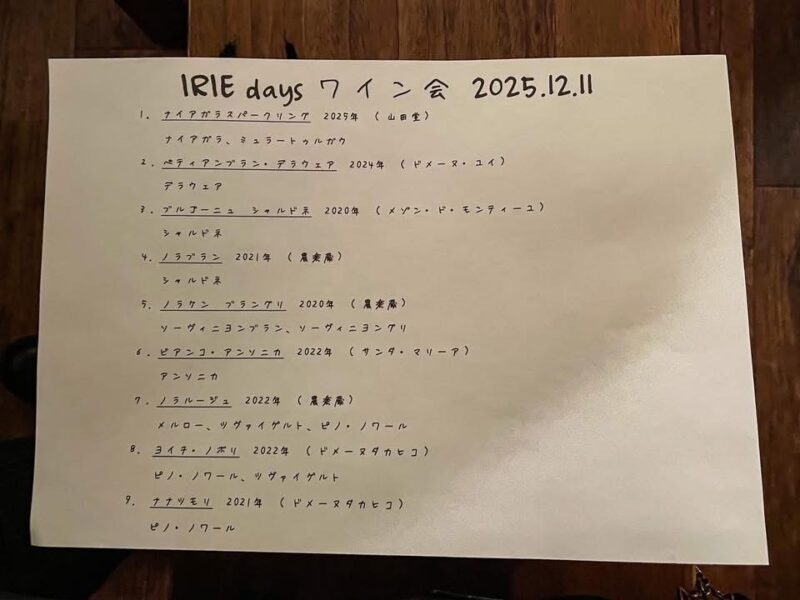 IRIE days ワイン会 2025.12.11
1. ナイアガラスパークリング 2025年 (山田堂)
ナイアガラ、ミュラートゥルガウ
2. ペティアンブラン・デラウェア 2024年 (ドメーヌ・ユイ)
デラウェア
3. ブルゴーニュ シャルドネ 2020年 (メゾン・ド・モンティーユ)
シャルドネ
4. ノラブラン 2021年 (農楽蔵)
シャルドネ
5. ノラケン ブラングリ 2020年 (農楽蔵)
ソーヴィニヨンブラン、ソーヴィニヨングリ
6. ビアンコ・アンソニカ 2022年 (サンタ・マリーア)
アンソニカ
7. ノラルージュ 2022年 (農楽蔵)
メルロー、ツヴァイゲルト、ピノ・ノワール
8. ヨイチ・ノボリ 2022年 (ドメーヌタカヒコ)
ピノ・ノワール、ツヴァイゲルト
9. ナナツモリ 2021年 (ドメーヌタカヒコ)
ピノ・ノワール